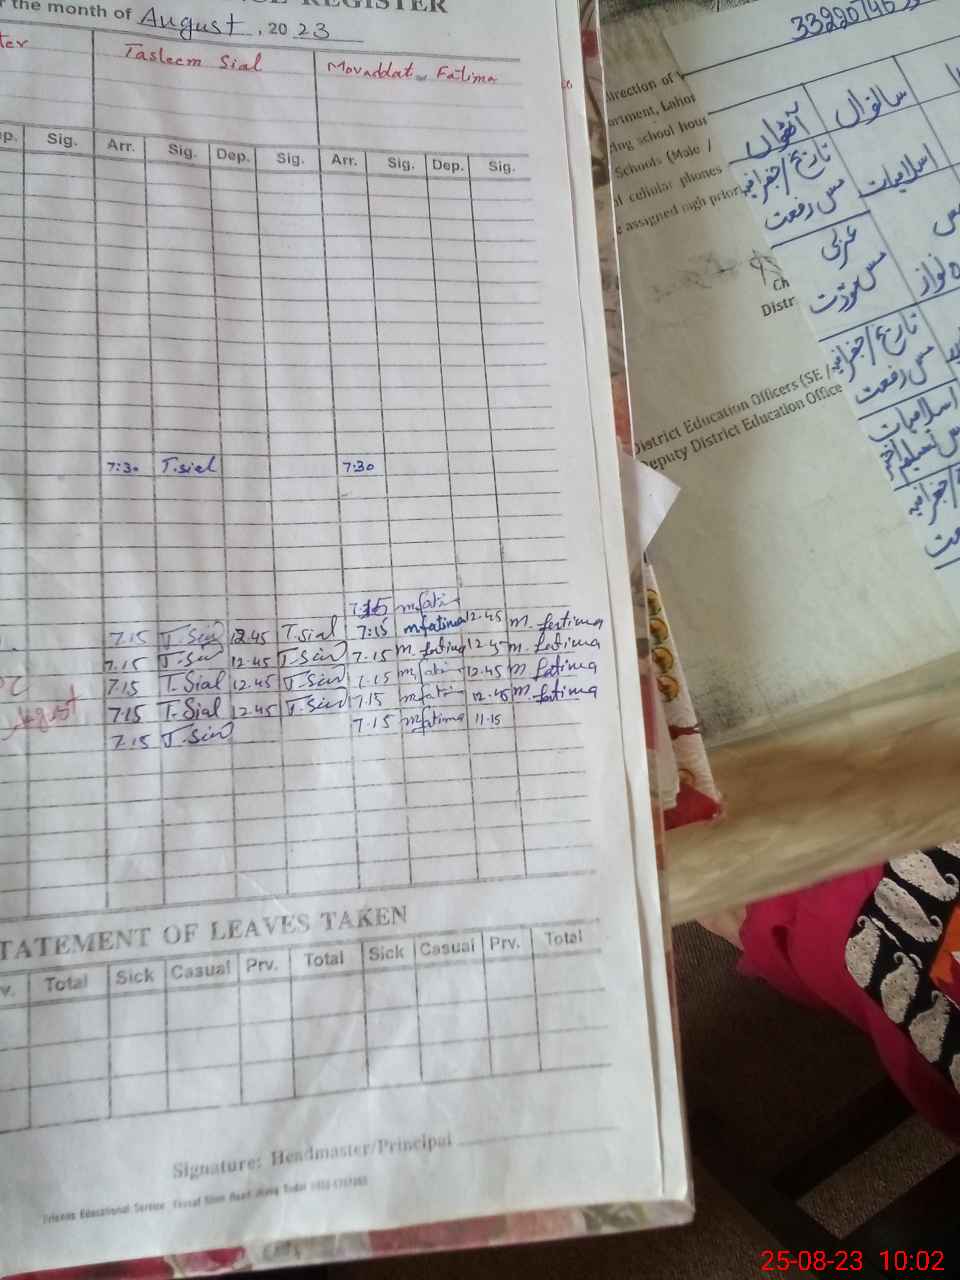 REGISTER
the month of August, 2023
Tasleem Sial Movaddat Fatima
Sig. Arr. Sig. Dep. Sig. Arr. Sig. Dep. Sig.
7:30 T.sial 7:30
7:15 mfati
7.15 T.Sial 12.45 T.sial 7:15 mfatima 12.45 m.fatima
7.15 T.Sial 12.45 T.Sial 7.15 m.fatima 12.45 m.fatima
7.15 T.Sial 12.45 T.Sial 7.15 m.fati 12.45 m.fatima
7.15 T.Sial 12.45 T.Sial 7.15 mfati 12.45 m.fatima
7.15 T.Sial 7.15 mfatima 11.15
STATEMENT OF LEAVES TAKEN
Total Sick Casual Prv. Total Sick Casual Prv. Total
Signature: Headmaster/Principal
Friends Educational Service
33220746
direction of
artment, Lahor
ing school hour
Schools (Male /
of cellular phones
e assigned high prior
Ch
Distr
District Education Officers (SE /
Deputy District Education Office
آٹھواں ساتواں
تاریخ/جغرافیہ اسلامیات
مس رفعت
عربی
مس مودت نواز
تاریخ/جغرافیہ
مس رفعت
اسلامیات
25-08-23 10:02